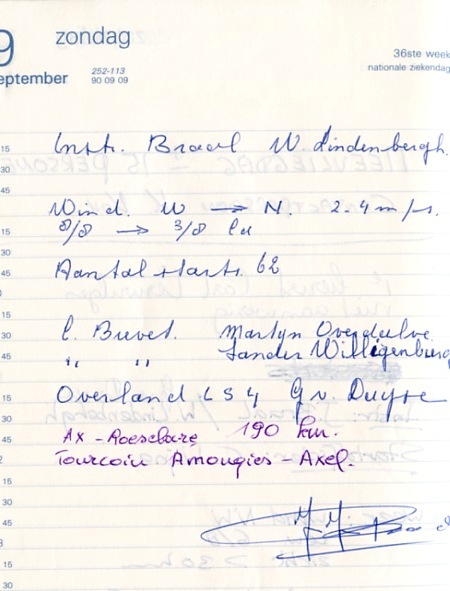 9 zondag
september 252-113
90 09 09
36ste week
nationale ziekendag
Instr. Braal W. Lindenbergh.
Wind. W → N. 2-4 m/s.
8/8 → 3/8 cu
Aantal starts. 62
C. Brevet. Martyn Overdulve.
" " Sander Willigenburg
Overland LS4 G v. Duyse
AX - Roeselaire 190 km.
Tourcoin Amougies - Axel.